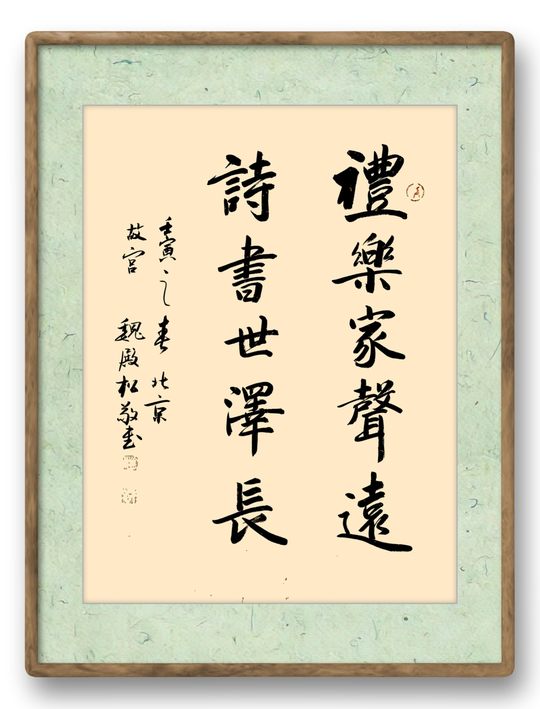 禮樂家聲遠
詩書世澤長
壬寅之春北京
故宮 魏殿松敬書